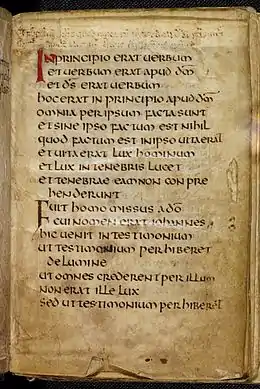 IN PRINCIPIO ERAT UERBUM
ET UERBUM ERAT APUD Dm̄
ET Ds̄ ERAT UERBUM
HOC ERAT IN PRINCIPIO APUD Dm̄
OMNIA PER IPSUM FACTA SUNT
ET SINE IPSO FACTUM EST NIHIL
QUOD FACTUM EST IN IPSO UITA ERAT
ET UITA ERAT LUX HOMINUM
ET LUX IN TENEBRIS LUCET
ET TENEBRAE EAM NON CONPRE
HENDERUNT
FUIT HOMO MISSUS A Dō
CUI NOMEN ERAT IOHANNES
HIC UENIT IN TESTIMONIUM
UT TESTIMONIUM PERHIBERET
DE LUMINE
UT OMNES CREDERENT PER ILLUM
NON ERAT ILLE LUX
SED UT TESTIMONIUM PERHIBERET